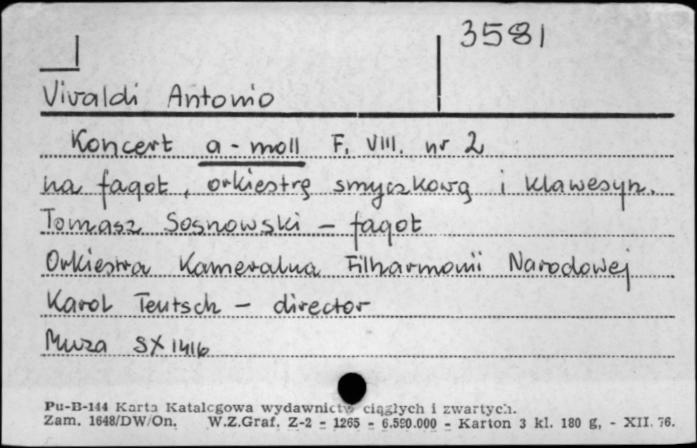 3581
Vivaldi Antonio
Koncert a-moll F. VIII. nr 2
na fagot, orkiestrę smyczkową i klawesyn.
Tomasz Sosnowski - fagot
Orkiestra Kameralna Filharmonii Narodowej
Karol Teutsch - director
Muza SX 1416
Pu-B-144 Karta Katalogowa wydawnictw ciągłych i zwartych.
Zam. 1648/DW/On. W.Z.Graf. Z-2 - 1265 - 6.590.000 - Karton 3 kl. 180 g, - XII. 76.